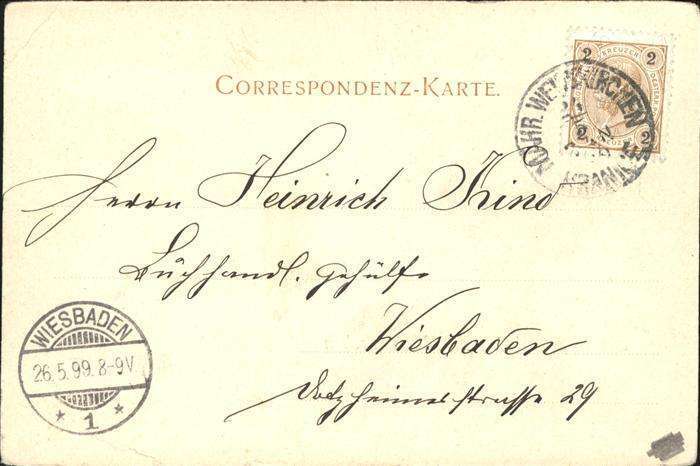 CORRESPONDENZ-KARTE.
2 KREUZER 2
2 2
MÄHR. WEISSKIRCHEN
Herrn Heinrich Kino
Buchhandl. gehülfe
Wiesbaden
Dotzheimerstrasse 29
WIESBADEN
26.5.99.8-9V
* 1 *